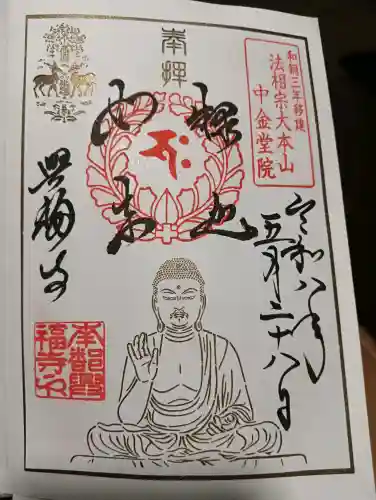 奉拝
和銅三年移建
法相宗大本山
中金堂院
令和八年
五月二十八日
釋迦
如来
興福寺
南都興
福寺印